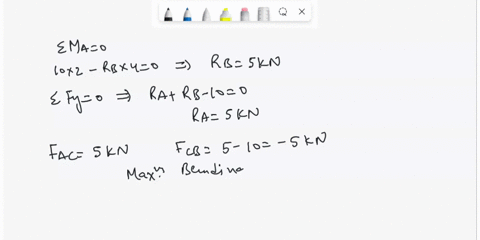 ΣMA=0
10×2 - RB×4=0 ⇒ RB=5KN
ΣFy=0 ⇒ RA+RB-10=0
RA=5KN
FAC=5KN FCB=5-10=-5KN
Maxᵐ. Bending